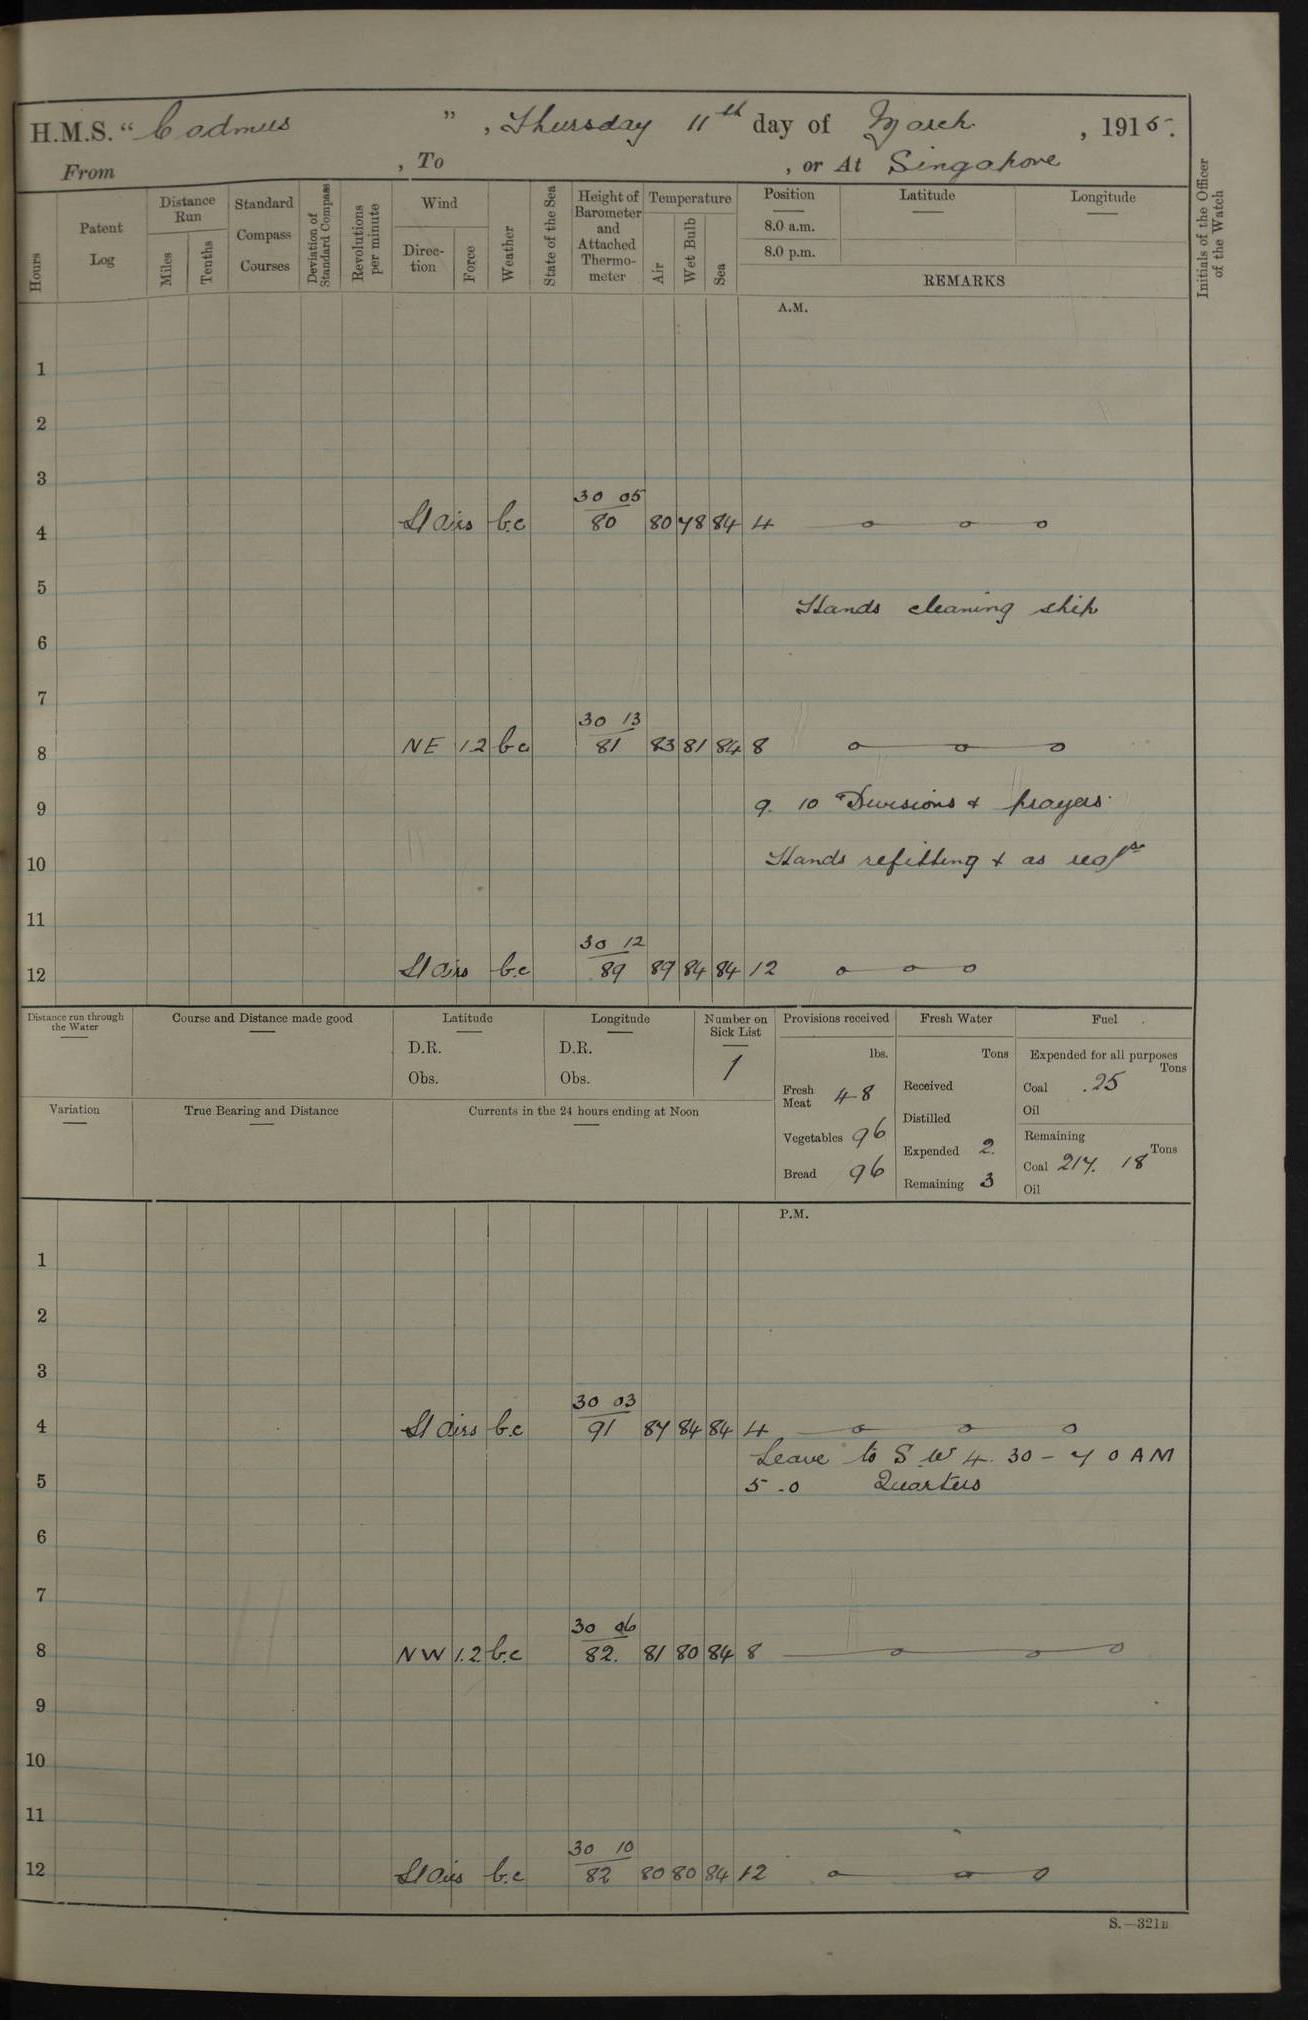 H.M.S. “ Cadmus ” , Thursday 11th day of March , 1915.
From , To , or At Singapore
Hours
Patent Log
Distance Run
Miles
Tenths
Standard Compass Courses
Deviation of Standard Compass
Revolutions per minute
Wind
Direc-tion
Force
Weather
State of the Sea
Height of Barometer and Attached Thermo-meter
Temperature
Air
Wet Bulb
Sea
Position Latitude Longitude
8.0 a.m.
8.0 p.m.
REMARKS
Initials of the Officer of the Watch
A.M.
1
2
3
30 05
4 Lt airs b.c 80 80 78 84 4
5
Hands cleaning ship
6
7
30 13
8 NE 1.2 b.c 81 83 81 84 8
9 9. 10 Divisions & prayers.
10 Hands refitting & as reqre
11
30 12
12 Lt airs b.c 89 89 84 84 12
Distance run through the Water
Course and Distance made good
Latitude
D.R.
Obs.
Longitude
D.R.
Obs.
Number on Sick List
1
Provisions received
lbs.
Fresh Meat 48
Vegetables 96
Bread 96
Fresh Water
Tons
Received
Distilled
Expended 2.
Remaining 3
Fuel
Expended for all purposes
Tons
Coal .25
Oil
Remaining
Tons
Coal 217. 18
Oil
Variation
True Bearing and Distance
Currents in the 24 hours ending at Noon
P.M.
1
2
3
30 03
4 Lt airs b.c 91 87 84 84 4
Leave to S W 4. 30 – 7 0 AM
5 5 .0 Quarters
6
7
30 06
8 NW 1.2 b.c 82. 81 80 84 8
9
10
11
30 10
12 Lt airs b.c 82 80 80 84 12
S.—321B